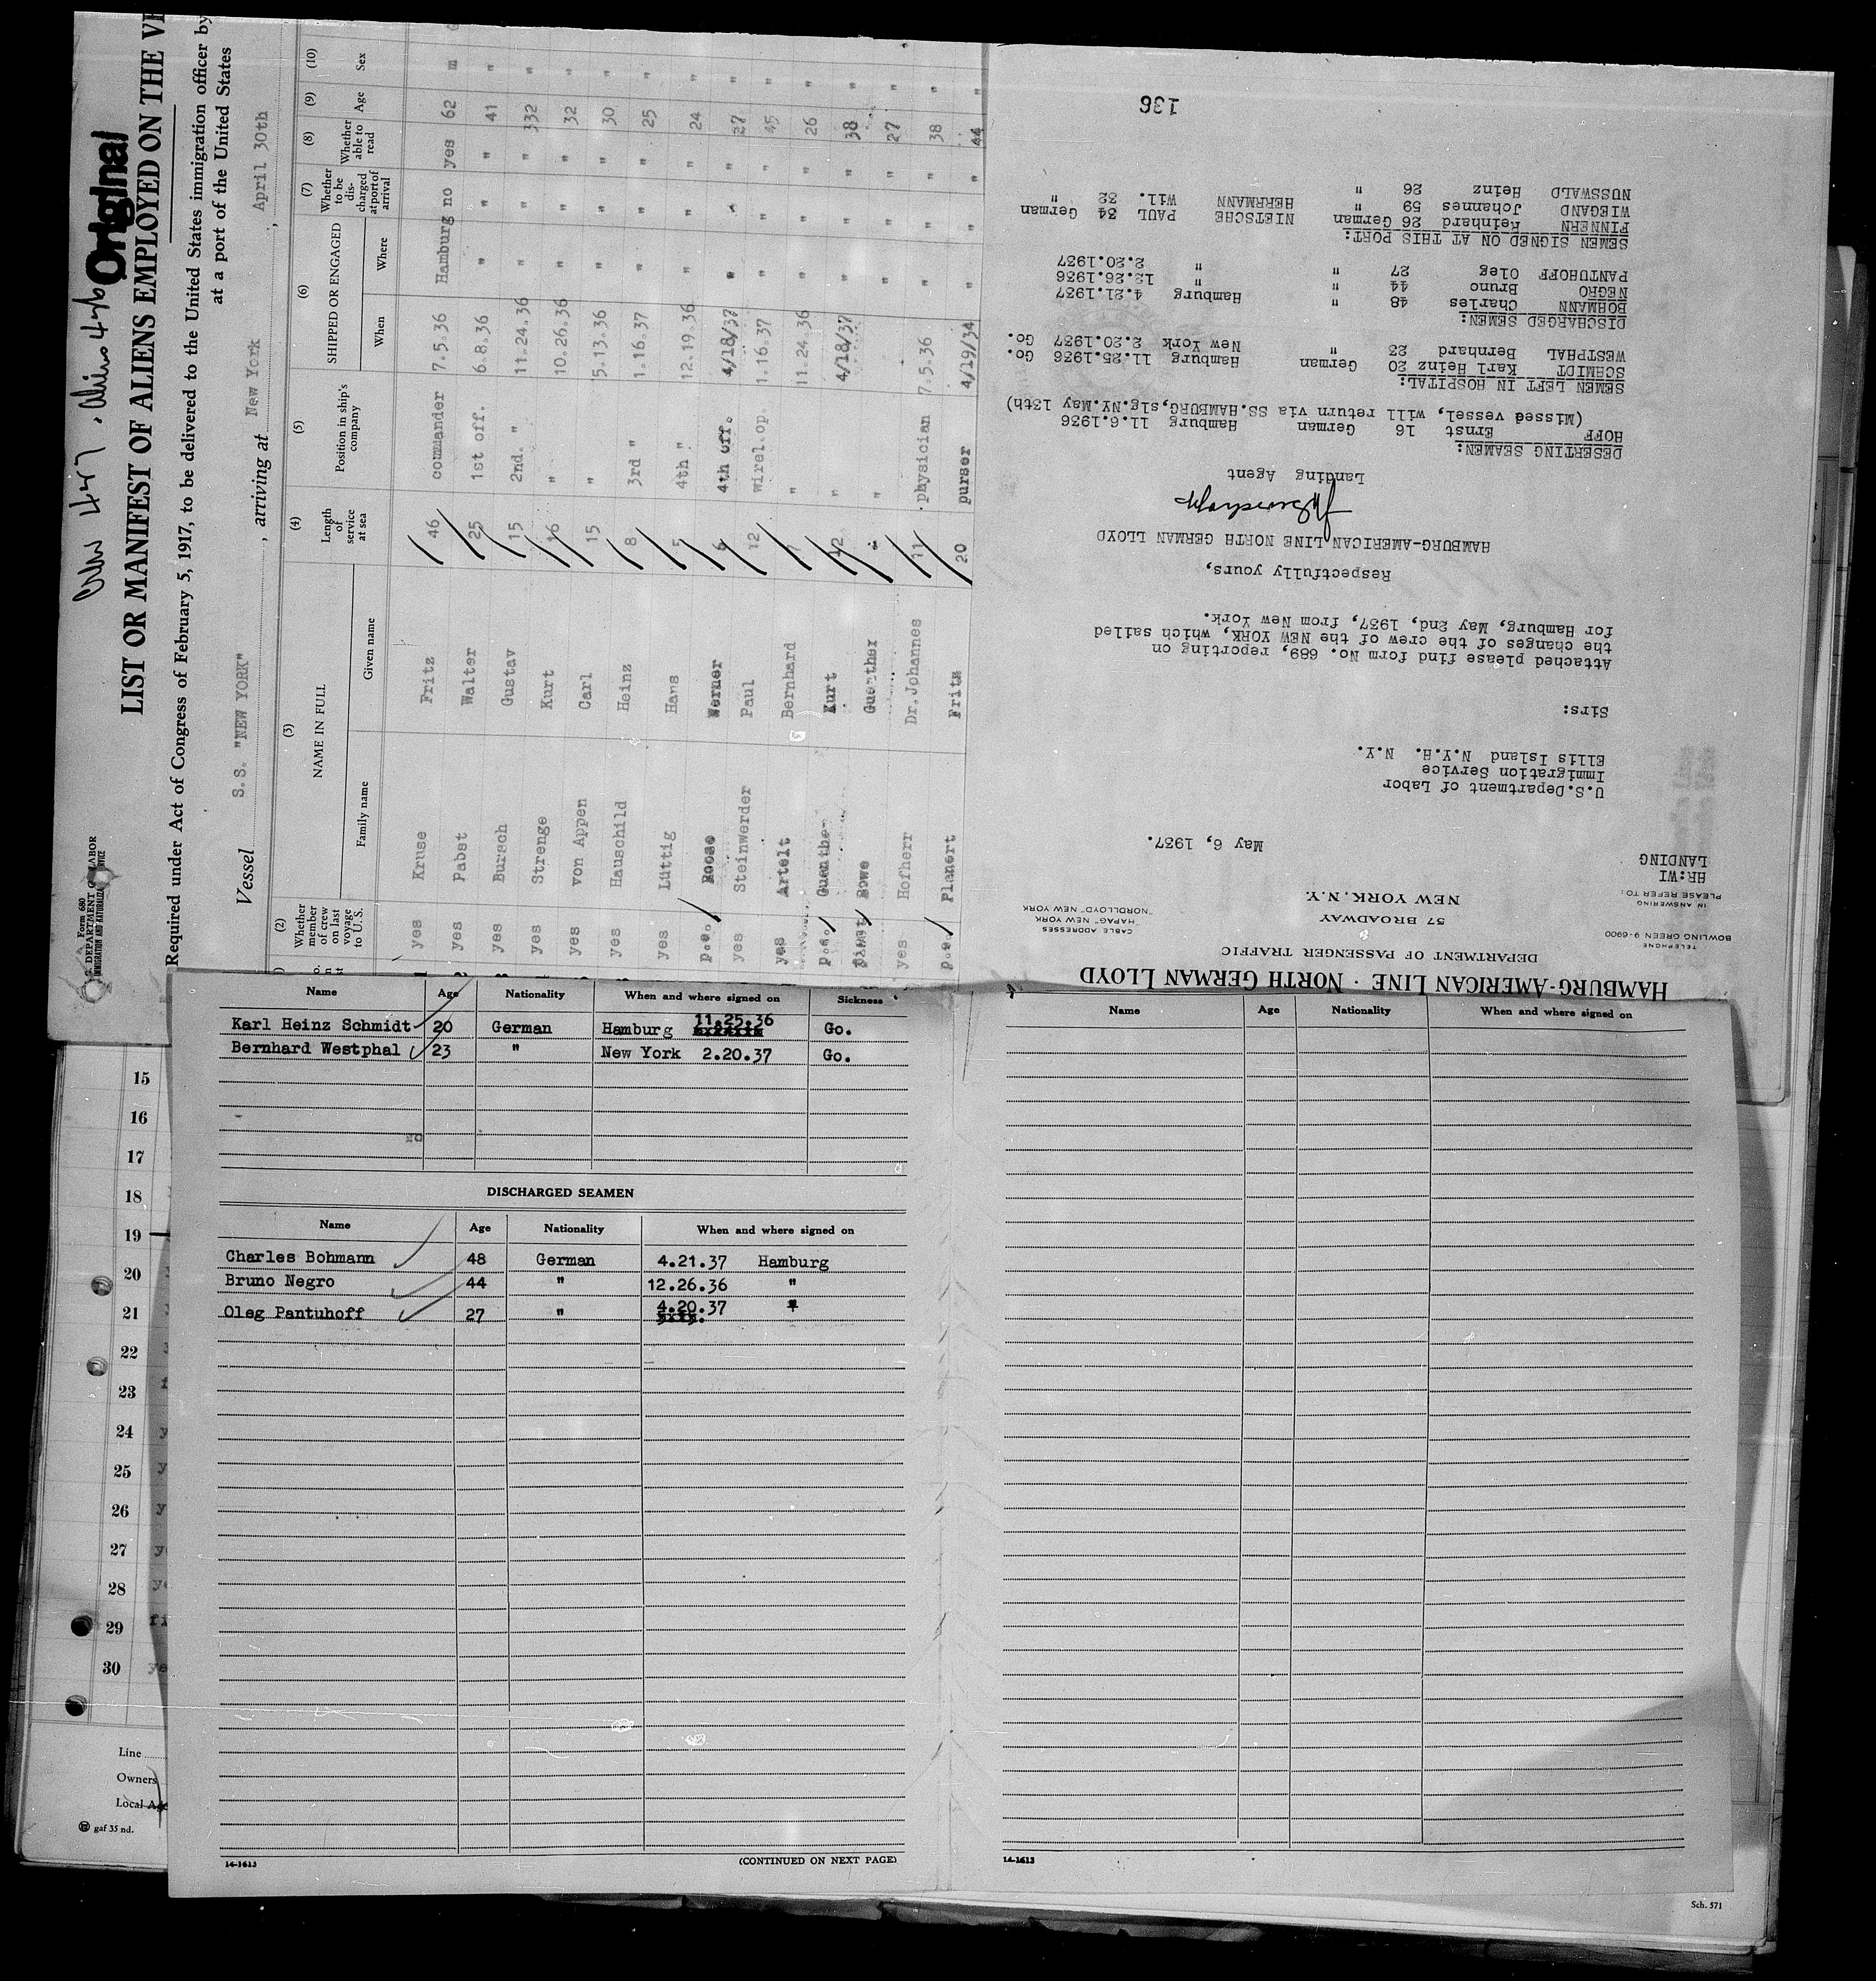 Form 680
U.S. DEPARTMENT OF LABOR
IMMIGRATION AND NATURALIZATION SERVICE
Original
LIST OR MANIFEST OF ALIENS EMPLOYED ON THE
Required under Act of Congress of February 5, 1917, to be delivered to the United States immigration officer by
at a port of the United States
Vessel S.S. "NEW YORK" , arriving at New York , April 30th
(2) (3) (4) (5) (6) (7) (8) (9) (10)
Whether member of crew on last voyage to U.S. NAME IN FULL Length of service at sea Position in ship's company SHIPPED OR ENGAGED Whether to be discharged at port of arrival Whether able to read Age Sex
Family name Given name When Where
yes Kruse Fritz 46 commander 7.5.36 Hamburg no yes 62 m
yes Pabst Walter 25 1st off. 6.8.36 " " " 41 "
yes Bursch Gustav 15 2nd. " 11.24.36 " " " 332 "
yes Strenge Kurt 16 " 10.26.36 " " " 32 "
yes von Appen Carl 15 " 5.13.36 " " " 30 "
yes Hauschild Heinz 8 3rd " 1.16.37 " " " 25 "
yes Lüttig Hans 5 4th " 12.19.36 " " " 24 "
p.o. Roose Werner 6 4th off. 4/18/37 " " " 27 "
yes Steinwerder Paul 12 wirel.op. 1.16.37 " " " 45 "
yes Artelt Bernhard " 11.24.36 " " " 26 "
p.o. Guenther Kurt 12 " 4/18/37 " " " 38 "
first Bowe Guenther " " " " 27 "
yes Hofherr Dr.Johannes 11 physician 7.5.36 " " " 38 "
p.o. Planert Fritz 20 purser 4/19/34 " " " 44 "
HAMBURG-AMERICAN LINE · NORTH GERMAN LLOYD
DEPARTMENT OF PASSENGER TRAFFIC
57 BROADWAY
NEW YORK, N.Y.
TELEPHONE
BOWLING GREEN 9-6900
CABLE ADDRESSES
"HAPAG" NEW YORK
"NORDLLOYD" NEW YORK
IN ANSWERING
PLEASE REFER TO:
HR:WI
LANDING
May 6, 1937.
U.S.Department of Labor
Immigration Service
Ellis Island N.Y.H. N.Y.
Sirs:
Attached please find form No. 689, reporting on
the changes of the crew of the NEW YORK, which sailed
for Hamburg, May 2nd, 1937, from New York.
Respectfully yours,
HAMBURG-AMERICAN LINE NORTH GERMAN LLOYD
Landing Agent
DESERTING SEAMEN:
HOFF Ernst 16 German Hamburg 11.6.1936
(Missed vessel, will return via SS.HAMBURG,slg.NY.May 13th)
SEMEN LEFT IN HOSPITAL:
SCHMIDT Karl Heinz 20 German Hamburg 11.25.1936 Go.
WESTPHAL Bernhard 23 " New York 2.20.1937 Go.
DISCHARGED SEMEN:
BOHMANN Charles 48 " Hamburg 4.21.1937
NEGRO Bruno 44 " " 12.26.1936
PANTUHOFF Oleg 27 " " 2.20.1937
SEMEN SIGNED ON AT THIS PORT:
FINNERN Reinhard 26 German NIETSCHE PAUL 34 German
WIEGAND Johannes 59 " HERRMANN Wil. 32 "
NUSSWALD Heinz 26 "
136
Name Age Nationality When and where signed on Sickness
Karl Heinz Schmidt 20 German Hamburg 11.25.36 Go.
Bernhard Westphal 23 " New York 2.20.37 Go.
DISCHARGED SEAMEN
Name Age Nationality When and where signed on
Charles Bohmann 48 German 4.21.37 Hamburg
Bruno Negro 44 " 12.26.36 "
Oleg Pantuhoff 27 " 4.20.37 "
14-1613
(CONTINUED ON NEXT PAGE)
Name Age Nationality When and where signed on
14-1613
15
16
17
18
19
20
21
22
23
24
25
26
27
28
29
30
Line
Owners
Local
gaf 35 nd.
Sch. 571